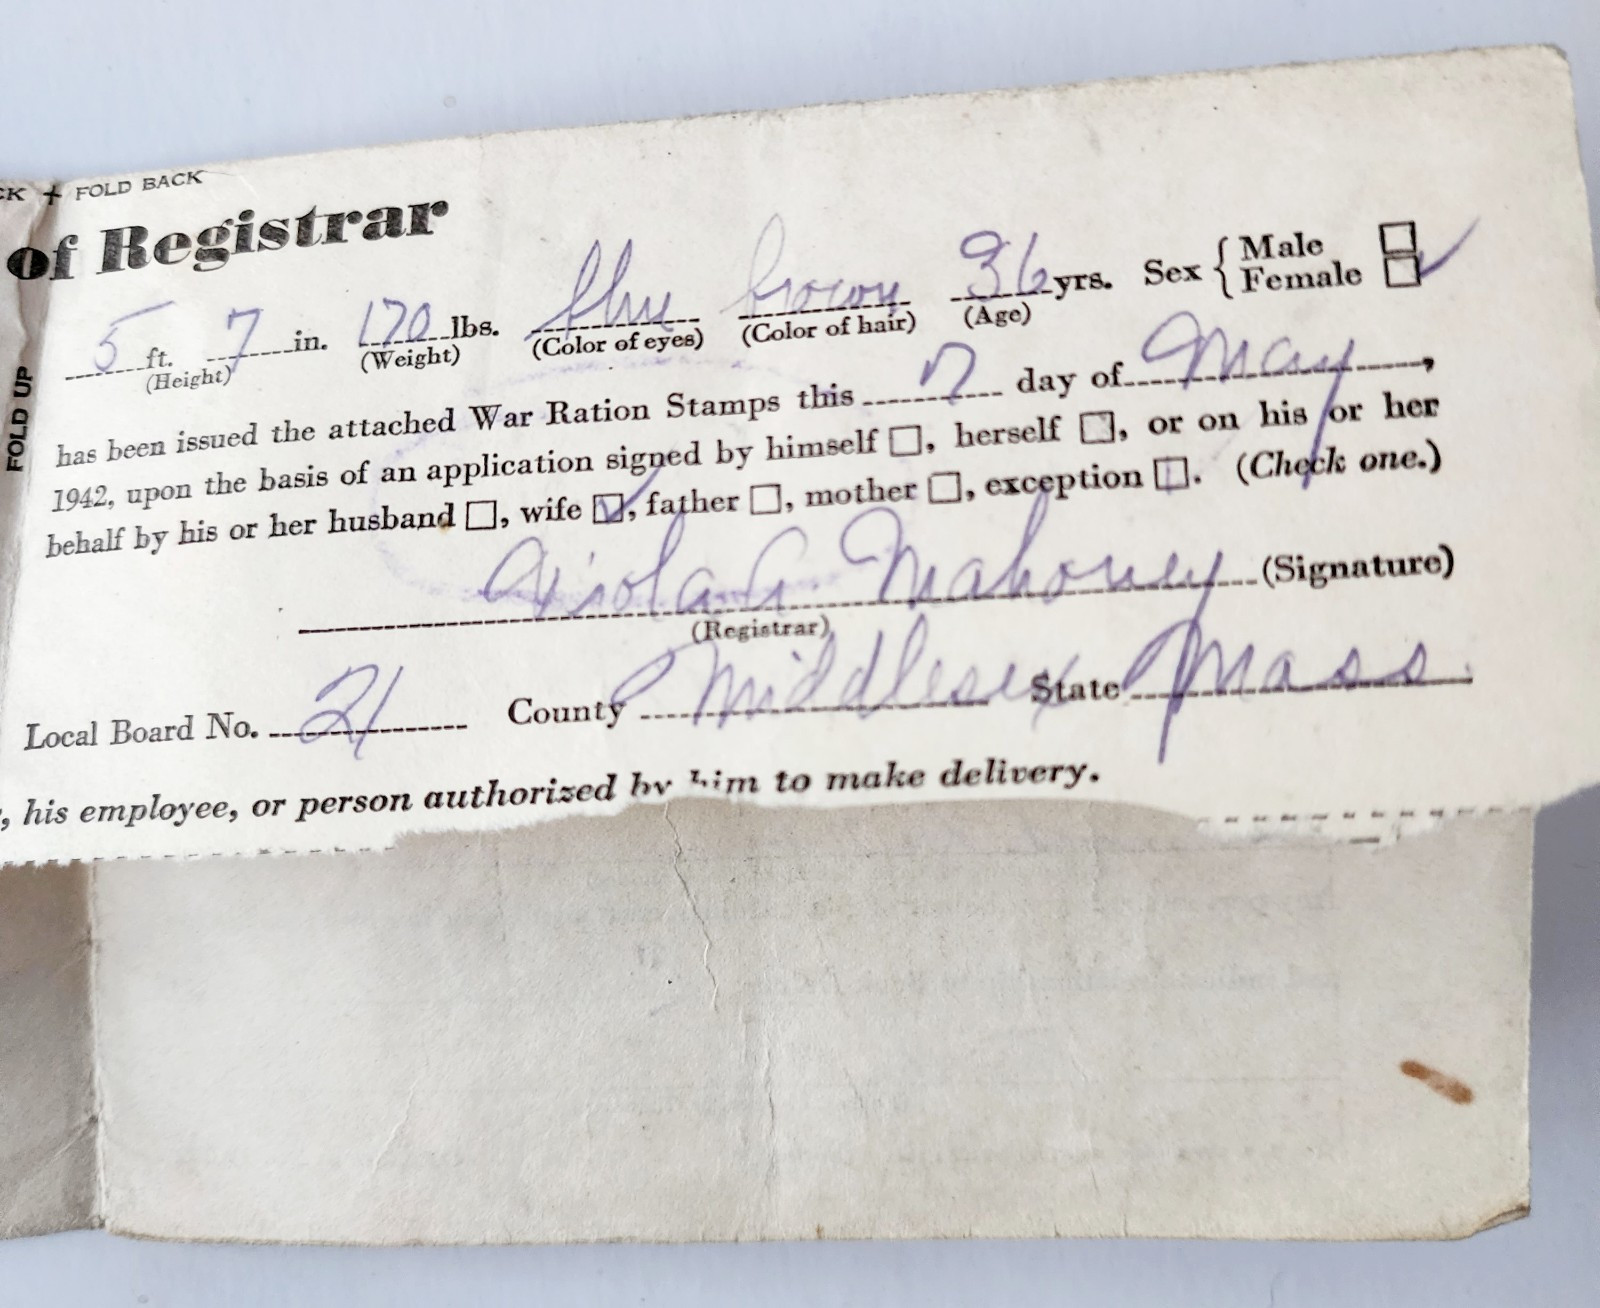 CK + FOLD BACK
of Registrar
5 ft. 7 in. 170 lbs. blue brown 36 yrs. Sex { Male ☐
Female ☐ ✓
(Height) (Weight) (Color of eyes) (Color of hair) (Age)
FOLD UP
has been issued the attached War Ration Stamps this 7 day of May,
1942, upon the basis of an application signed by himself ☐, herself ☐, or on his or her
behalf by his or her husband ☐, wife ☑, father ☐, mother ☐, exception ☐. (Check one.)
Viola A. Mahoney (Signature)
(Registrar)
Local Board No. 21 County Middlesex State Mass.
, his employee, or person authorized by him to make delivery.